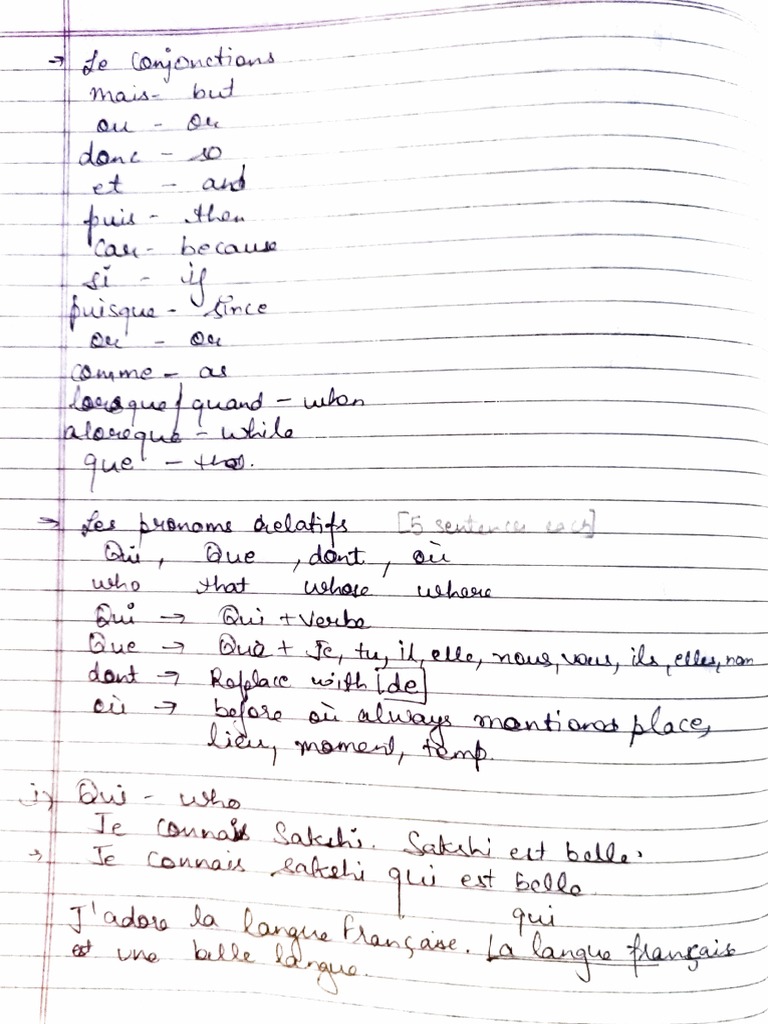 → Le Conjonctions
mais - but
ou - or
donc - so
et - and
puis - then
car - because
si - if
puisque - since
ou - or
comme - as
lorsque / quand - when
alorsque - while
que - that.
→ Les pronoms relatifs [5 sentences each]
Qui, Que, dont, où
who that whose where
Qui → Qui + Verbe
Que → Que + Je, tu, il, elle, nous, vous, ils, elles, nom
dont → Replace with [de]
où → before où always mentioned place,
lieu, moment, temp.
i) Qui - who
Je connais Sakshi. Sakshi est belle.
→ Je connais Sakshi qui est belle.
qui
J'adore la langue française. La langue français
est une belle langue.